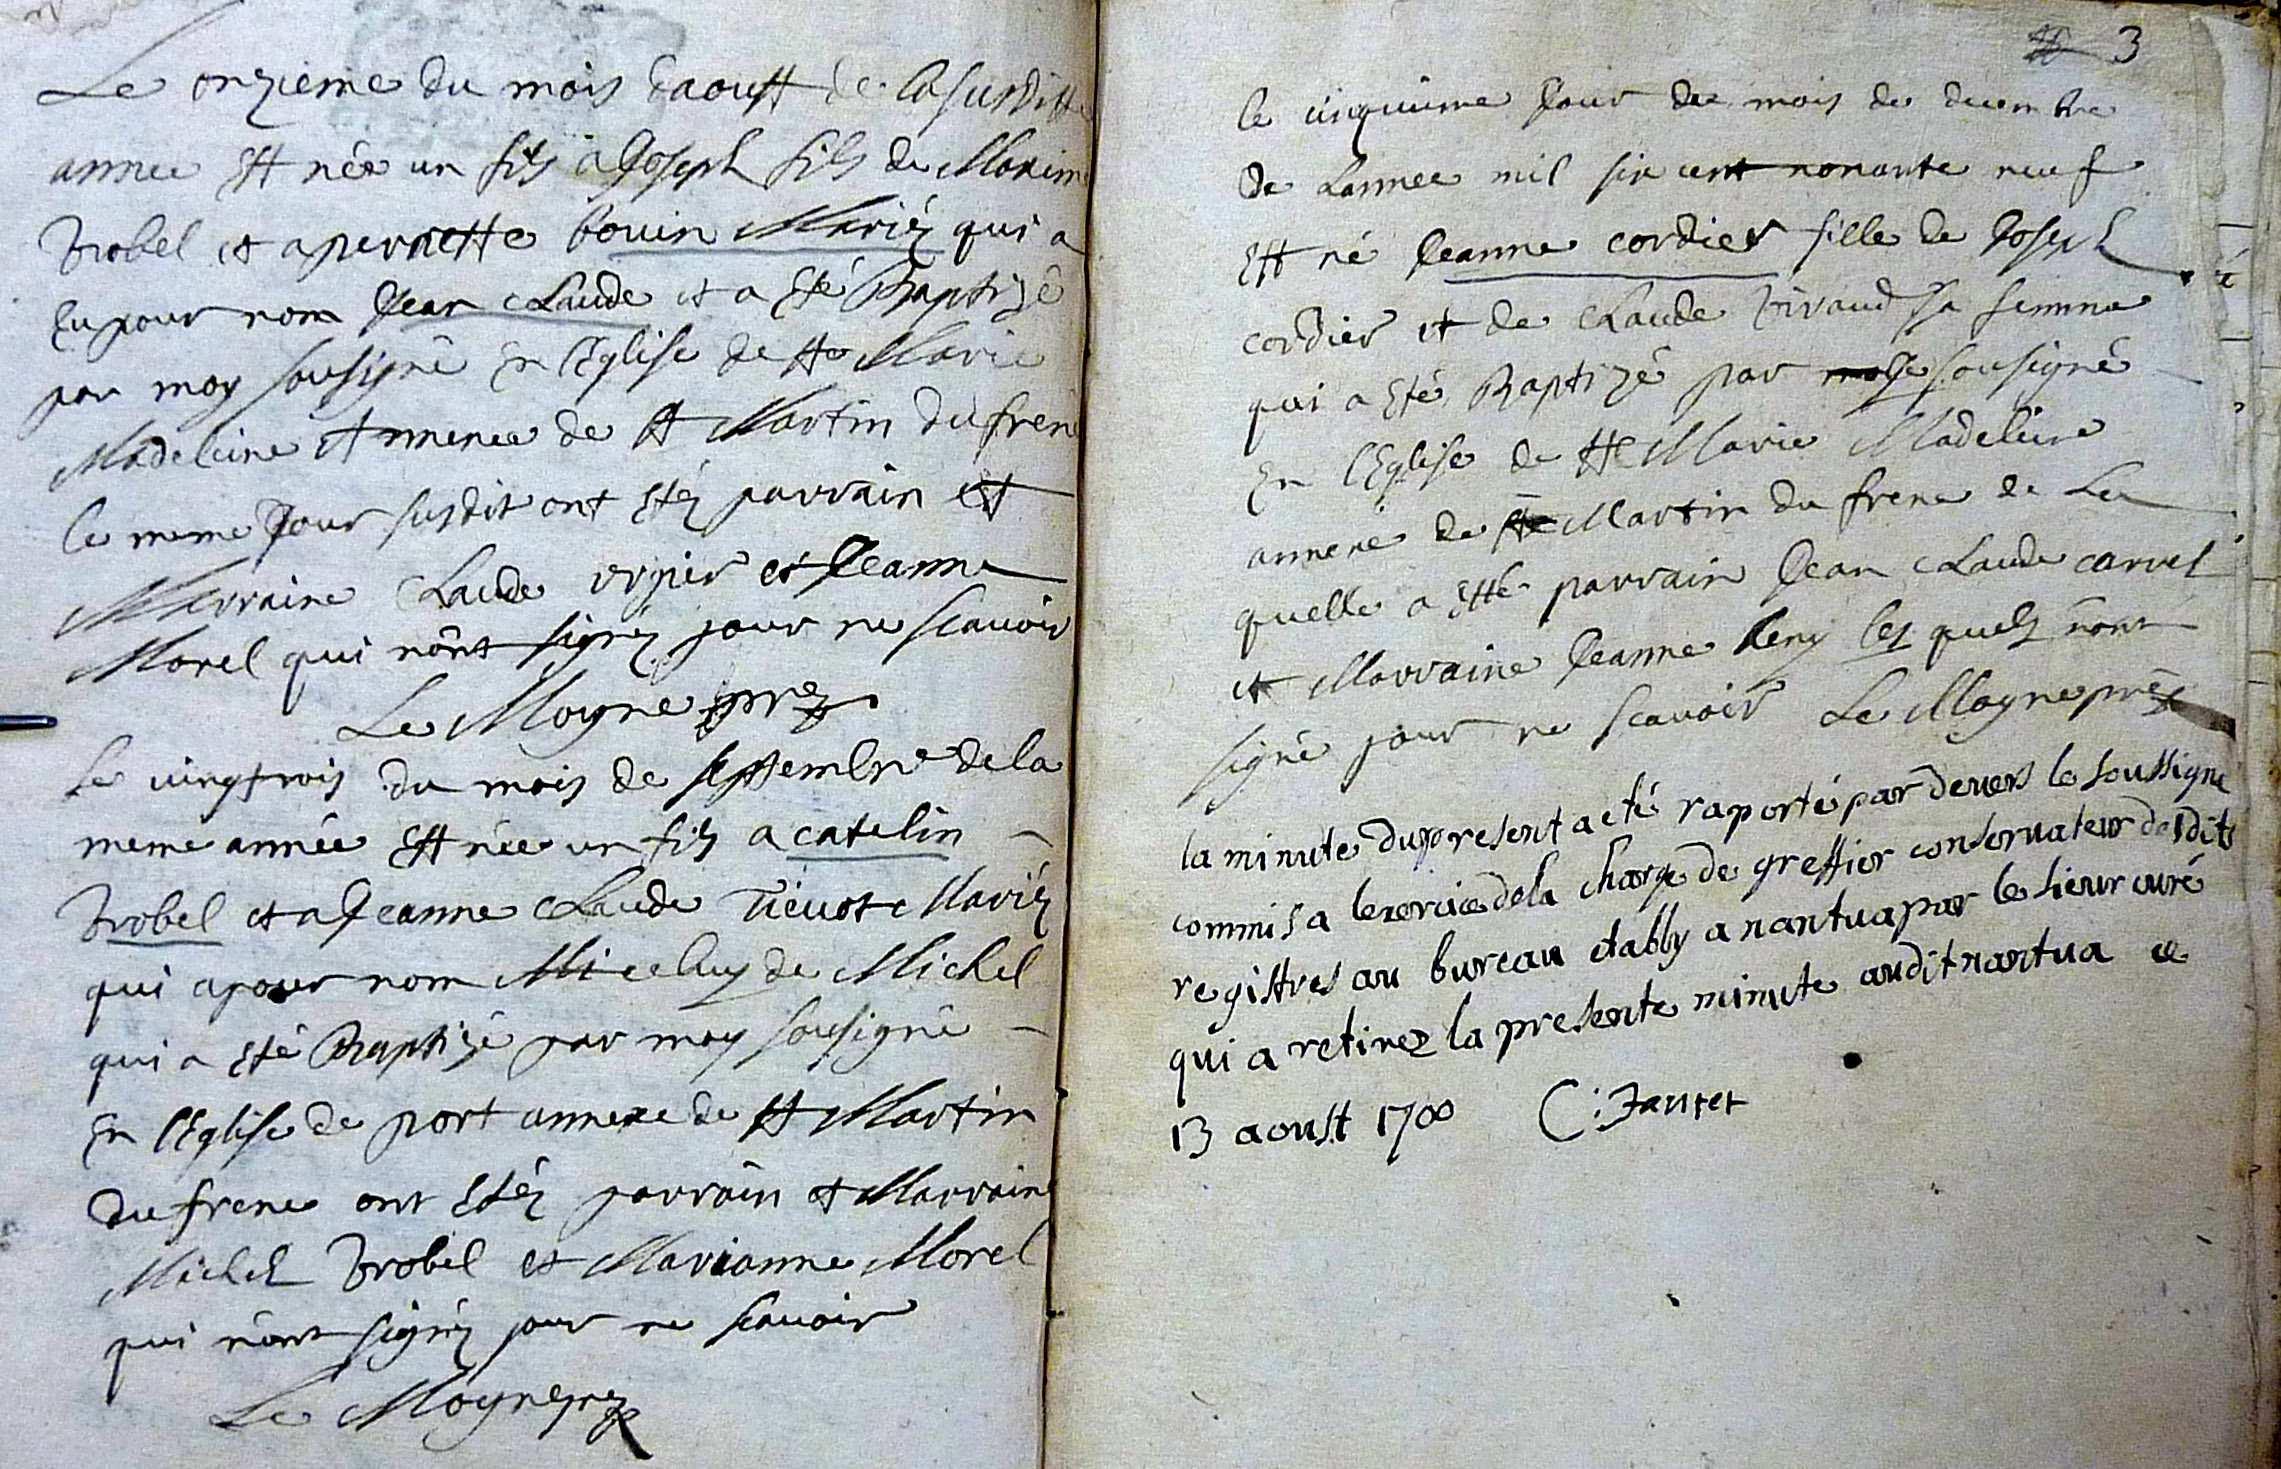 Le onzieme du mois daoust de la susditte
annee est née un fils a Joseph fils de Maxime
Brobel et a pernette bouin Mariéz qui a
Eu pour nom Jean Claude et a Eté Baptizé
par moy sousigné En l'Eglise de ste Marie
Madeleine Annexe de st Martin du frene
le meme Jour susdit ont Etéz parrain et
Marraine Claude et Jeanne
Morel qui n'ont signéz pour ne scauoir
Le Moyne
le uingtrois du mois de septembre de la
meme année Est née un fils a catelin
Brobel et a Jeanne Claude Tieuot Mariéz
qui a pour nom celuy de Michel
qui a Eté Baptizé par moy sousigné
En l'Eglise de port annexe de st Martin
du frene ont Etéz parrain et Marraine
Michel Brobel et Marianne Morel
qui n'ont signéz pour ne scauoir
Le Moyne
3
le cinquieme Jour de mois de decembre
de Lannee mil six cent nonante neuf
Est né Jeanne cordier fille de Joseph
cordier et de Claude Biraud sa femme
qui a Eté Baptizé par sousigné
En l'Eglise de ste Marie Madeleine
annexe de Martin du frene de La
quelle a Esté parrain Jean Claude carrel
et Marraine Jeanne les quels n'ont
signé pour ne scauoir Le Moyne
la minute du present a eté raporté par deuers le soussigne
commis a lexercice de la charge de greffier conseruateur desdits
registres au bureau etably a nantua par le sieur curé
qui a retirez la presente minute audit nantua ce
13 aoust 1700 C: Jantet